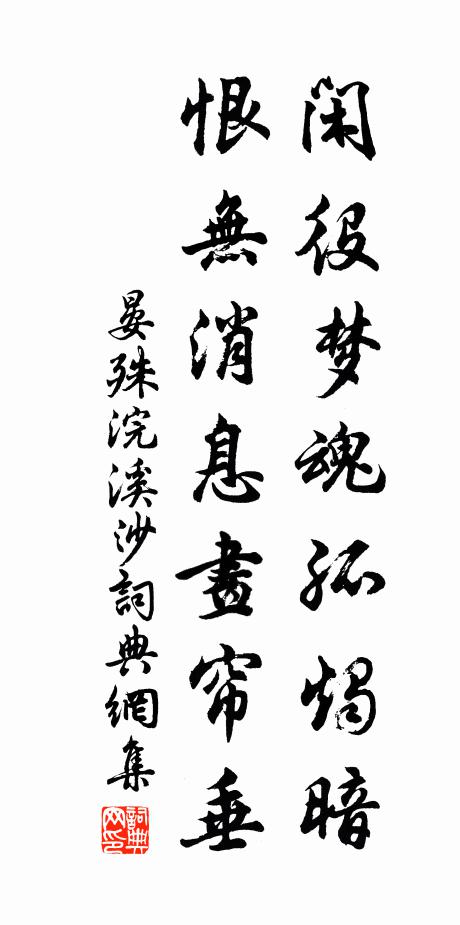 闲役梦魂孤烛暗
恨無消息畫帘垂
晏殊浣溪沙詞典網集
詞典网印